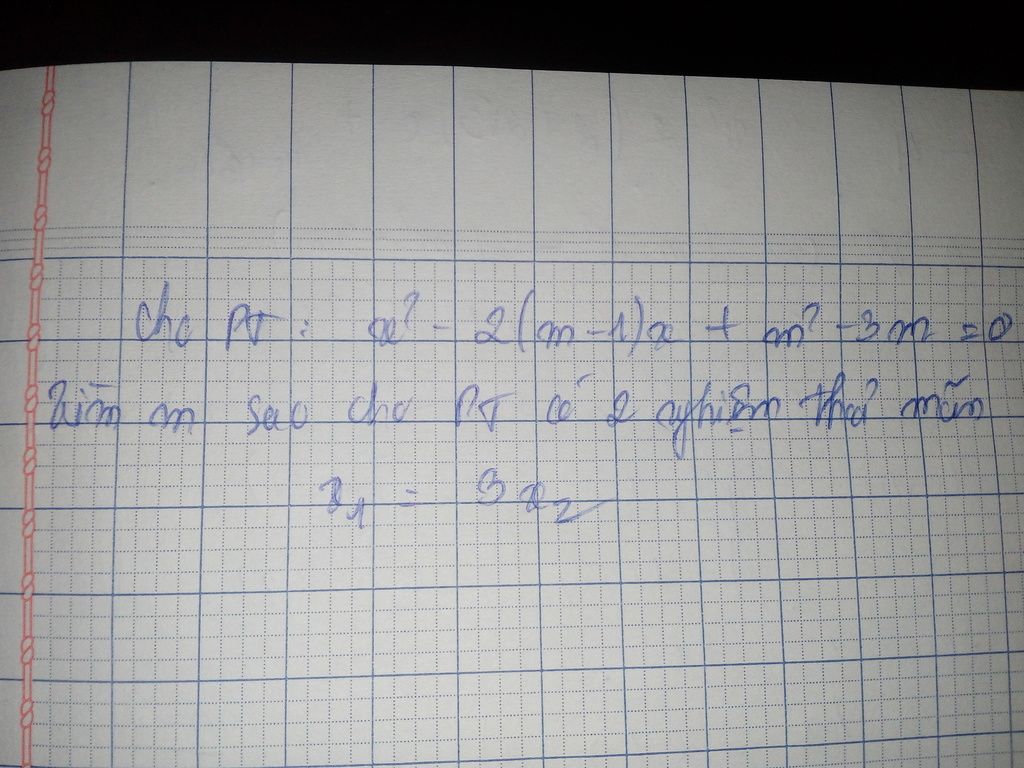 Cho PT: x² - 2(m-1)x + m² - 3m = 0
Tìm m sao cho PT có 2 nghiệm thoả mãn
x₁ = 3x₂